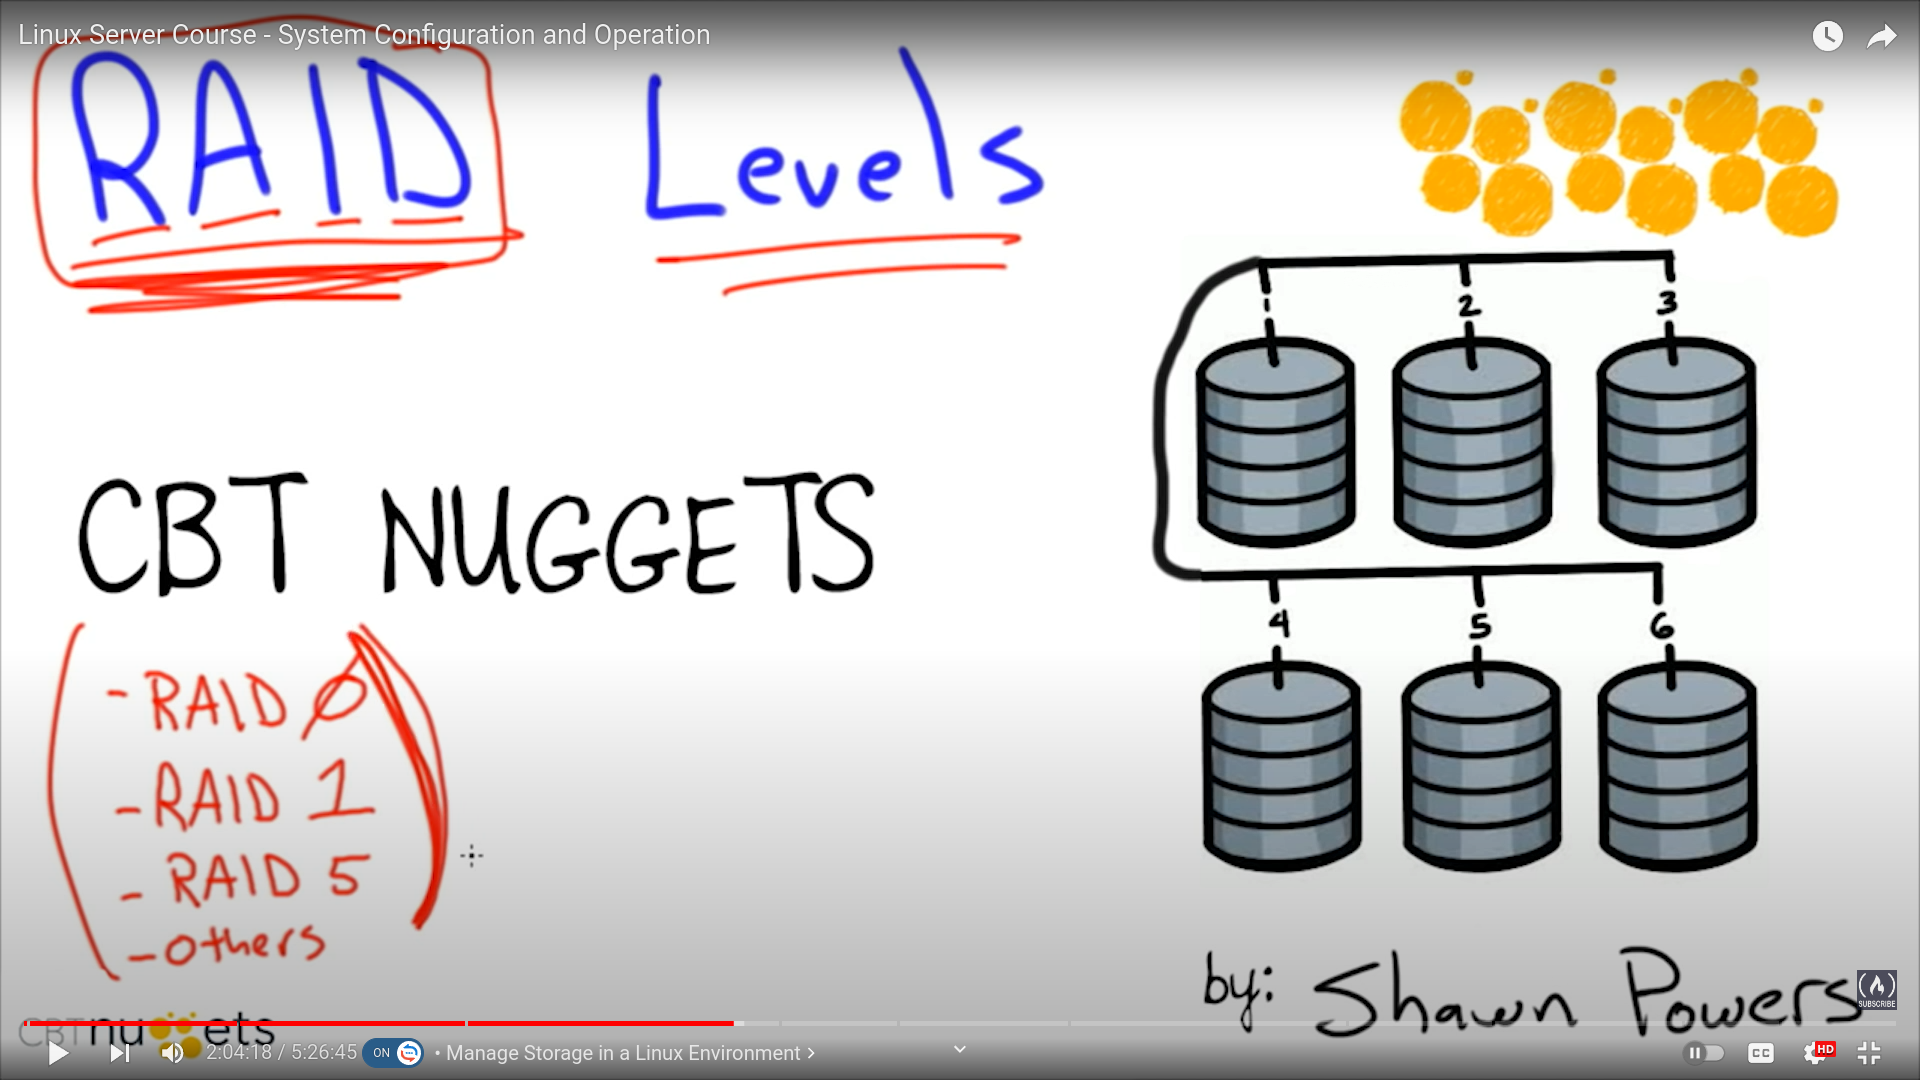 Linux Server Course - System Configuration and Operation
RAID Levels
2 3
CBT NUGGETS
4 5 6
- RAID 0
- RAID 1
- RAID 5
- others
by: Shawn Powers
SUBSCRIBE
CBTnuggets
2:04:18 / 5:26:45 ON • Manage Storage in a Linux Environment > CC HD